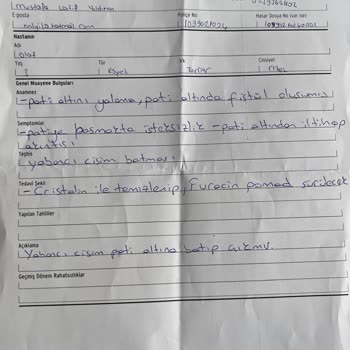 mustafa Latif Yıldırım
E-posta Poliçe No Hasar Dosya No (var ise)
Hastanın
Adı
olaf
Yaş Tür Irk Cinsiyet
1 Köpek Terrier
Genel Muayene Bulguları
Anamnez
-pati altını yalama, pati altında fistül oluşumu
Semptomlar
-patiye basmakta isteksizlik -pati altından iltihap
akıntısı
Teşhis
yabancı cisim batması
Tedavi Şekli
-Cristalin ile temizlenip, Furacin pomad sürülecek
Yapılan Tahliller
Açıklama
Yabancı cisim pati altına batıp çıkmış.
Geçmiş Dönem Rahatsızlıklar